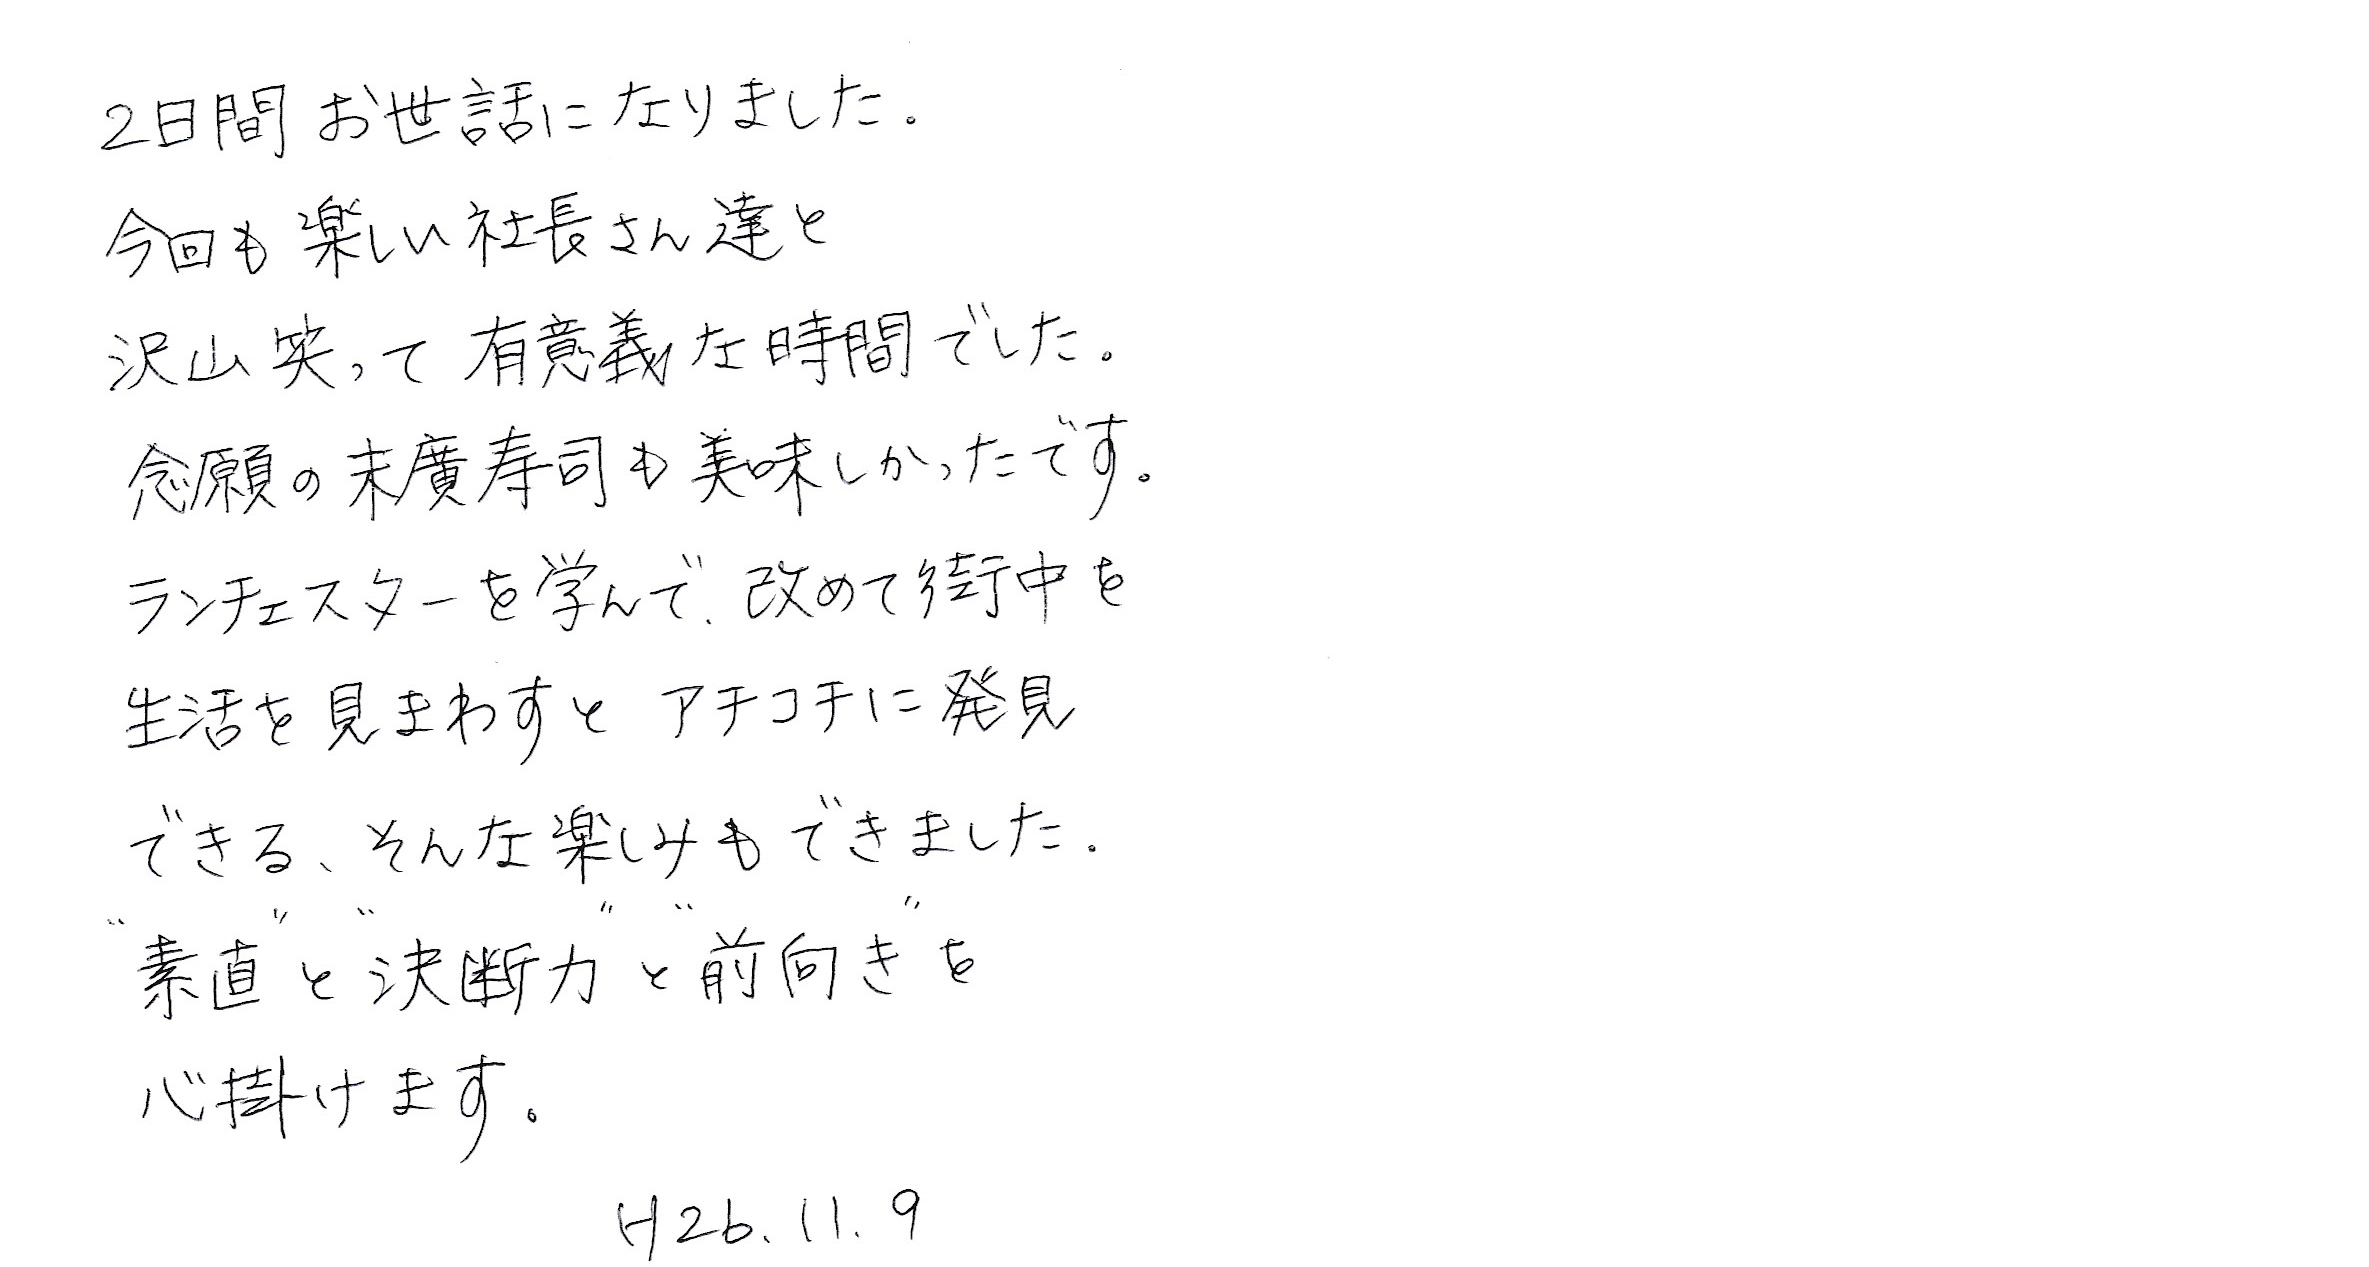 2日間お世話になりました。
今回も楽しい社長さん達と
沢山笑って有意義な時間でした。
念願の末廣寿司も美味しかったです。
ランチェスターを学んで、改めて街中を
生活を見まわすとアチコチに発見
できる、そんな楽しみもできました。
"素直"と"決断力"と"前向き"を
心掛けます。
H26.11.9